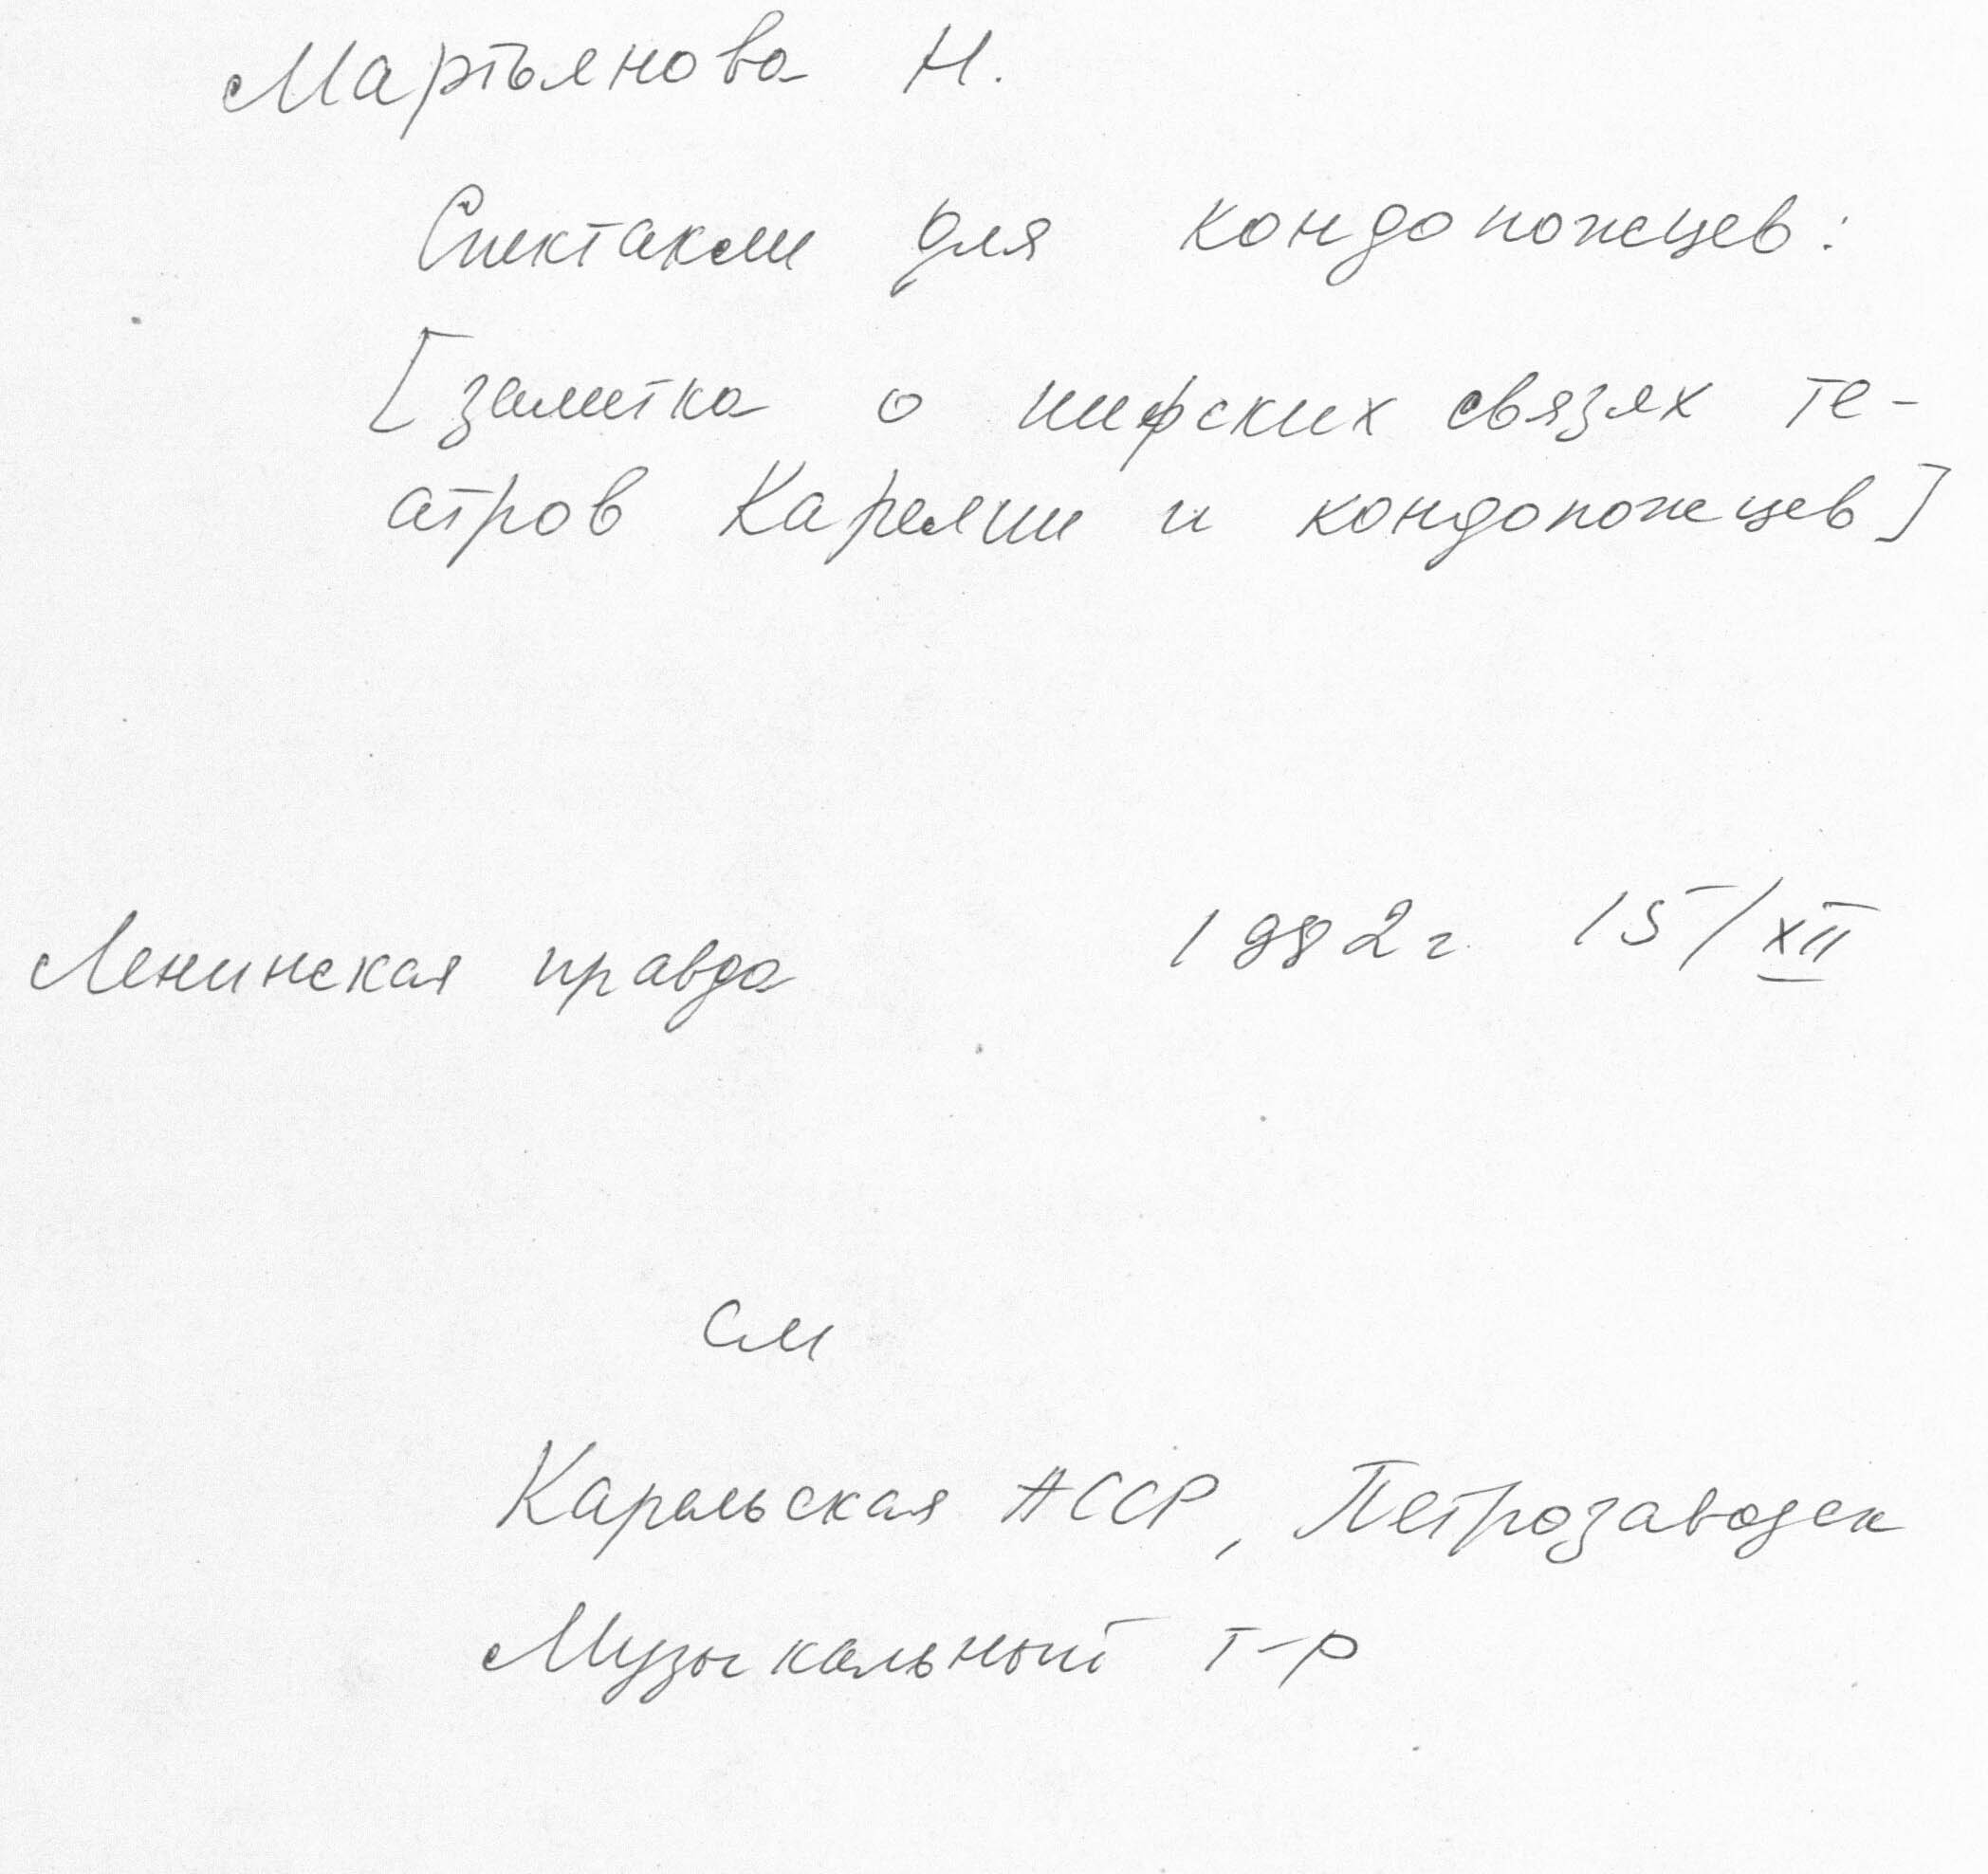 Мартьянова Н.
Спектакли для кондопожцев:
[заметка о шефских связях те-
атров Карелии и кондопожцев]
Ленинская правда 1982 г. 15/XII
см
Карельская АССР, Петрозаводск
Музыкальный т-р